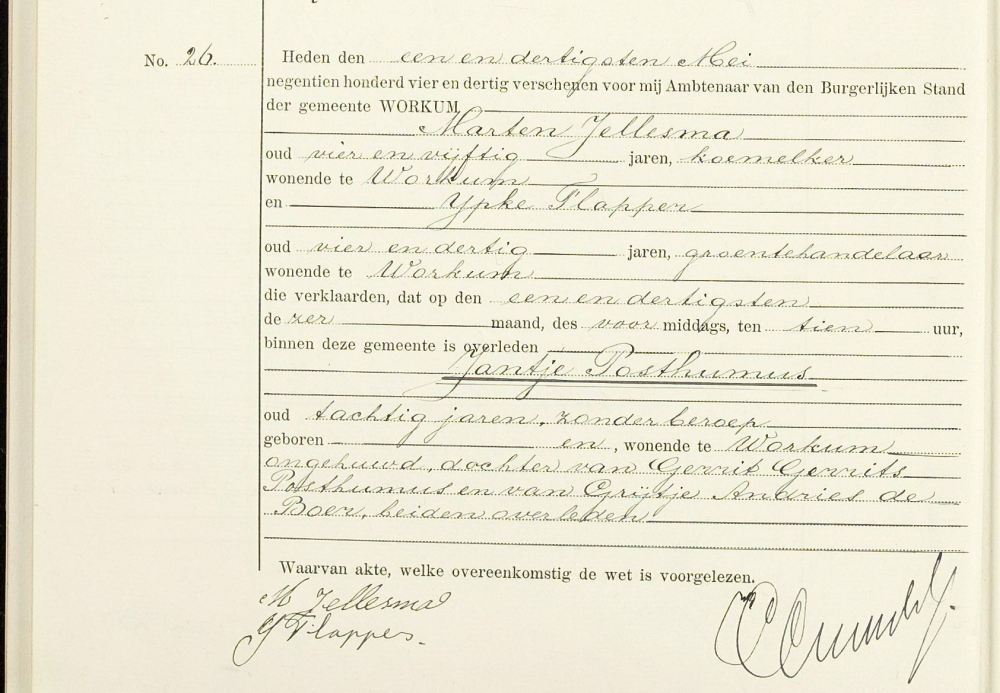 No. 26.
Heden den een en dertigsten Mei
negentien honderd vier en dertig verschenen voor mij Ambtenaar van den Burgerlijken Stand
der gemeente WORKUM
Marten Jellesma
oud vier en vijftig jaren, koemelker
wonende te Workum
en Ypke Flapper
oud vier en dertig jaren, groentehandelaar
wonende te Workum
die verklaarden, dat op den een en dertigsten
de zer maand, des voor middags, ten tien uur,
binnen deze gemeente is overleden
Jantje Posthumus
oud tachtig jaren, zonder beroep
geboren en, wonende te Workum
ongehuwd, dochter van Gerrit Gerrits
Posthumus en van Grijtje Andries de
Boer, beiden overleden
Waarvan akte, welke overeenkomstig de wet is voorgelezen.
M Jellesma
Y Flapper.